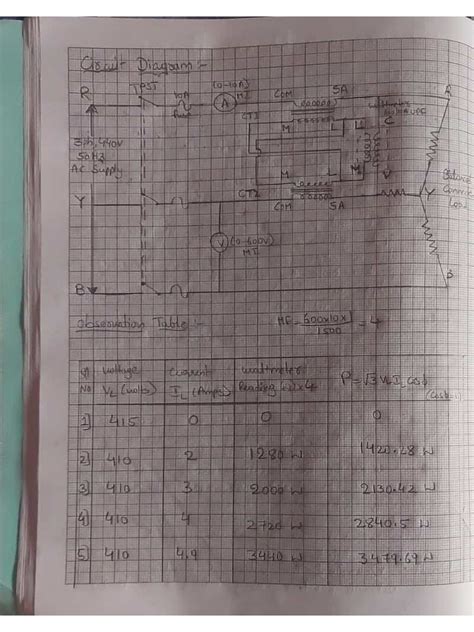 Circuit Diagram :-
R
TPST
10A
fuse
(0-10A)
MI
A
COM
5A
A
CT1
M
L
C
3ph, 440V
50Hz
AC Supply
M
V
Y
CT2
M
L
COM
5A
Y
V (0-600V)
MI
B
B
Observation Table :-
MF = 600x10x / 1500 = 4
Sr No
Voltage VL (volts)
Current IL (Amps)
Wattmeter Reading x4
P = √3 VL IL cosϕ
1] 415 0 0 0
2] 410 2 1280 W 1420.28 W
3] 410 3 2000 W 2130.42 W
4] 410 4 2720 W 2840.5 W
5] 410 4.9 3440 W 3479.69 W